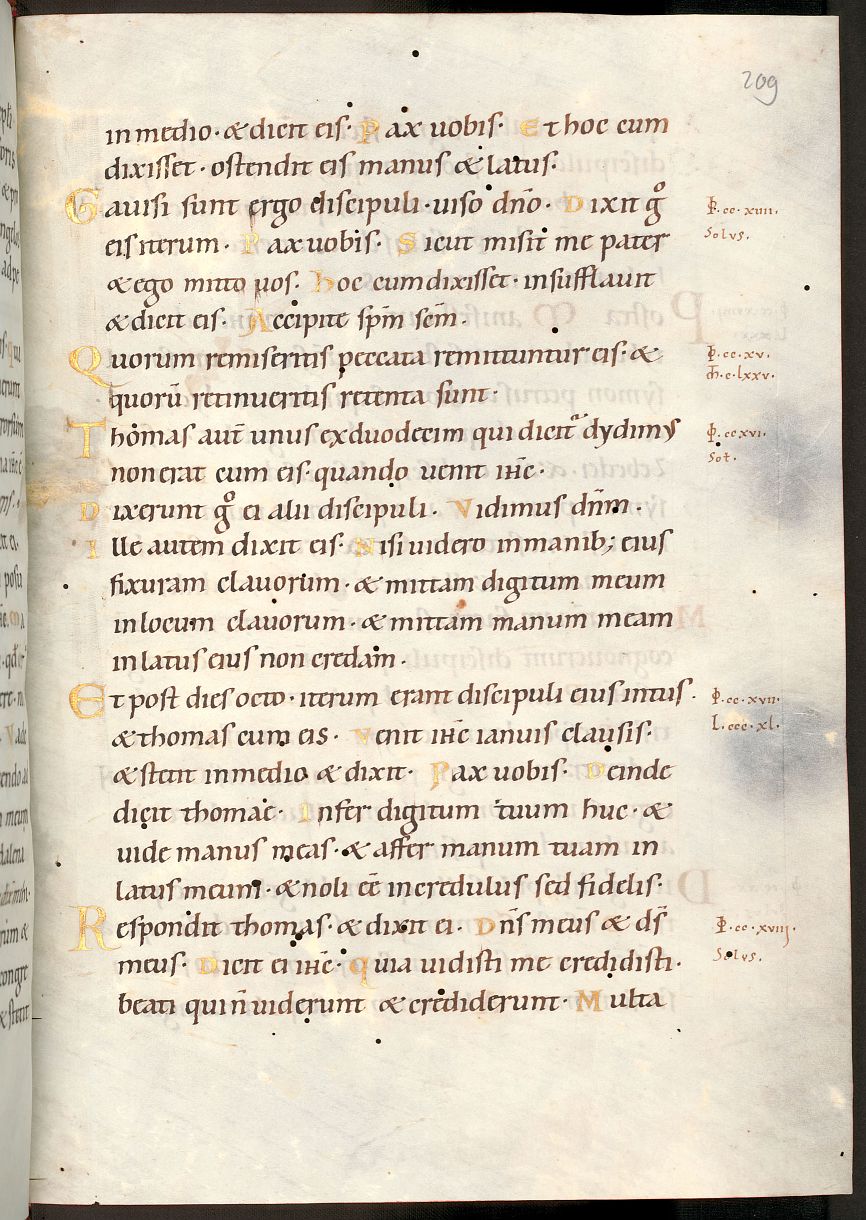 209
in medio · & dicit eis · Pax uobis · Et hoc cum
dixisset · ostendit eis manus & latus ·
Gauisi sunt ergo discipuli · uiso dño · Dixit g̊
eis iterum · Pax uobis · Sicut misit me pater
& ego mitto uos · Hoc cum dixisset · insufflauit
& dicit eis · Accipite sp̄m sc̄m ·
Quorum remiseritis peccata remittuntur eis · &
quorū retinueritis retenta sunt ·
Thomas aut̄ unus ex duodecim qui dicit᷑ dydimus
non erat cum eis · quando uenit ihc̄ ·
Dixerunt g̊ ei alii discipuli · Vidimus dn̄m ·
Ille autem dixit eis · Nisi uidero in manib; eius
fixuram clauorum · & mittam digitum meum
in locum clauorum · & mittam manum meam
in latus eius non credam ·
Et post dies octo · iterum erant discipuli eius intus ·
& thomas cum eis · Venit ihc̄ ianuis clausis ·
& stetit in medio & dixit · Pax uobis · Deinde
dicit thomae · Infer digitum tuum huc · &
uide manus meas · & affer manum tuam in
latus meum · & noli eē incredulus sed fidelis ·
Respondit thomas · & dixit ei · Dn̄s meus & ds̄
meus · Dicit ei ihc̄ · Quia uidisti me credidisti ·
beati qui n̄ uiderunt & crediderunt · Multa
·cc·xiiii·
Solus.
·cc·xv·
m̄·c·lxxv·
·ccxvi·
Sol·
·cc·xvii·
L·ccc·xl·
·cc·xviiij·
Solus.